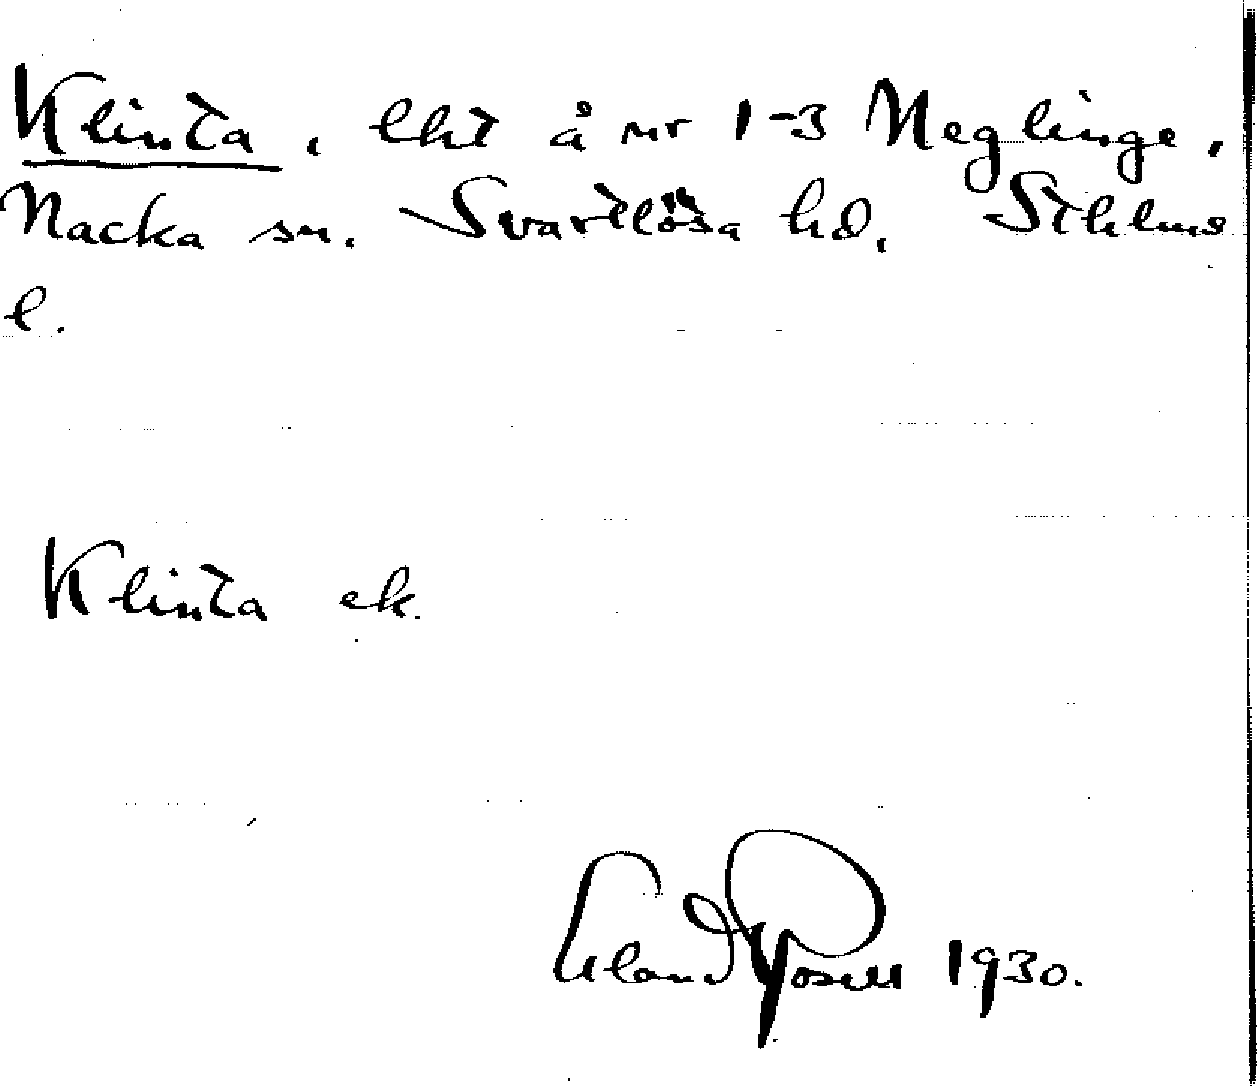 Klinta, lht å nr 1-3 Neglinge,
Nacka sn. Svartlösa hd, Sthlms
l.
Klinta ek.
Erland Rosell 1930.